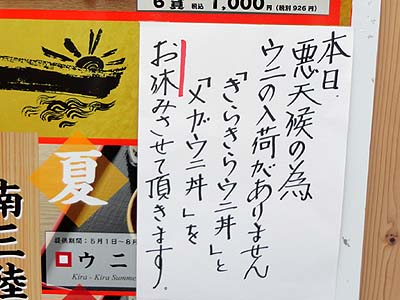 6貫 税込 1,000円 (税別926円)
本日
悪天候の為
ウニの入荷がありません
「きらきらウニ丼」と
「メガウニ丼」を
お休みさせて頂きます。
夏
南三陸
提供期間：5月1日〜8月
ウニ
Kira - Kira Summe